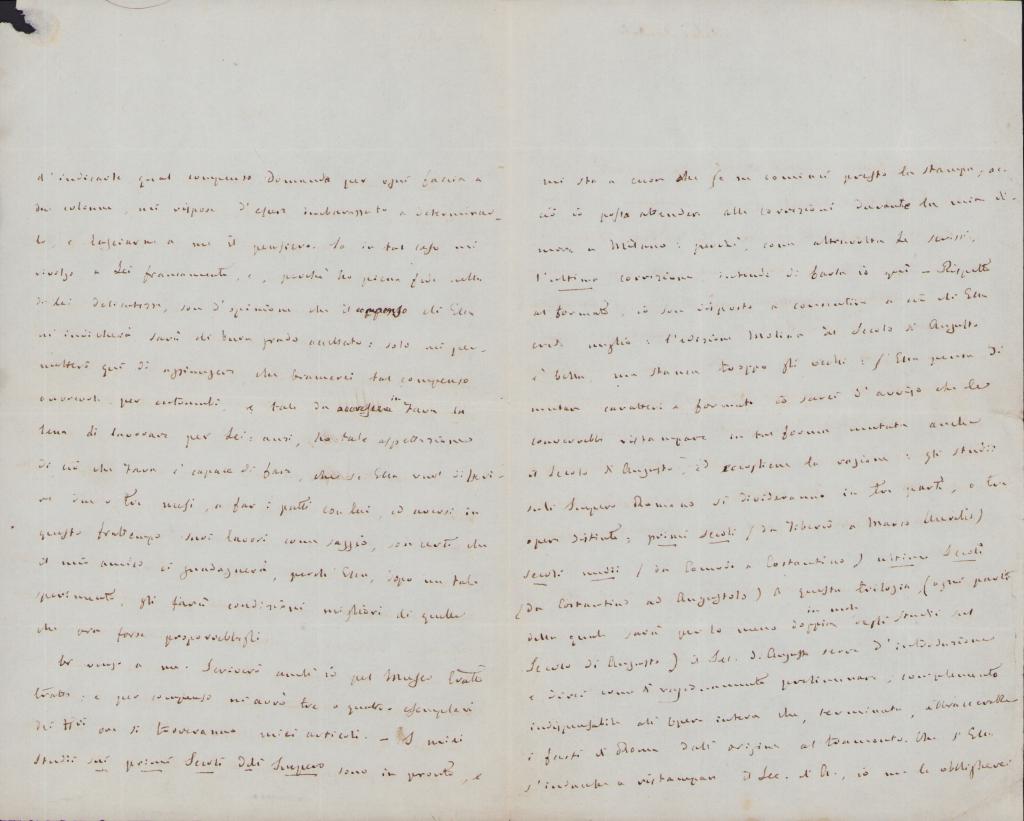 d'indicarle qual compenso domanda per ogni facia a
due colonne, mi rispose d'esser imbarazzato a determinar-
lo, e lasciarne a me il pensiero. Io in tal caso mi
rivolgo a Lei francamente, e, perché ho piena fede nella
di Lei delicatezza, son d'opinione che il compenso che Ella
mi indicherà sarà di buon grado accettato: solo mi per-
metterà qui di aggiungere che bramerei tal compenso
onorevole per entrambi, e tale da accrescere in Zava la
lena di lavorare per Lei: anzi, ho tale aspettazione
di ciò che Zava è capace di fare, che se Ella vuol differi-
re due o tre mesi, a far i patti con lui, ed aversi in
questo frattempo suoi lavori come saggio, son certo che
il mio amico ci guadagnerà, perché Ella, dopo un tale
sperimento, gli farà condizioni migliori di quelle
che ora forse proporrebbegli.
Or vengo a me. Scriverò anch'io pel Museo
e per compenso mi avrò tre o quattro esemplari
dei ove si troveranno miei articoli. — I miei
studii sui primi Secoli dell'Impero sono in pronto, e
mi sta a cuore che se ne cominci presto la stampa, ac-
ciò io possa attendere alle correzioni durante la mia di-
mora a Milano: perché, come altravolta Le scrissi,
l'ultima correzione intendo di farla io qui — Rispetto
al formato, io son disposto a consentire a ciò che Ella
crede meglio: l'edizione Molina del Secolo di Augusto
è bella, ma stanca troppo gli occhi: s'Ella pensa di
mutar caratteri e formato io sarei d'avviso che Le
converrebbe ristampare in tal forma mutata anche
il Secolo di Augusto, ed eccogliene la ragione: gli studii
sull'Impero Romano si divideranno in tre parti, o tre
opere distinte; primi secoli (da Tiberio a Marco Aurelio)
secoli medii (da Comodo a Costantino) ultimi Secoli
(da Costantino ad Augustolo) A questa trilogia, (ogni parte
della quale sarà per lo meno doppia in mole degli studii sul
Secolo di Augusto) il Sec. di Augusto serve d'introduzione
e direi come di ragionamento preliminare, complemento
indispensabile all'opera intera che, terminata, abbraccerebbe
i fasti di Roma dall'origine al tramonto. Che s'Ella
s'induce a ristampare il Sec. d'A., io me le obbligherei